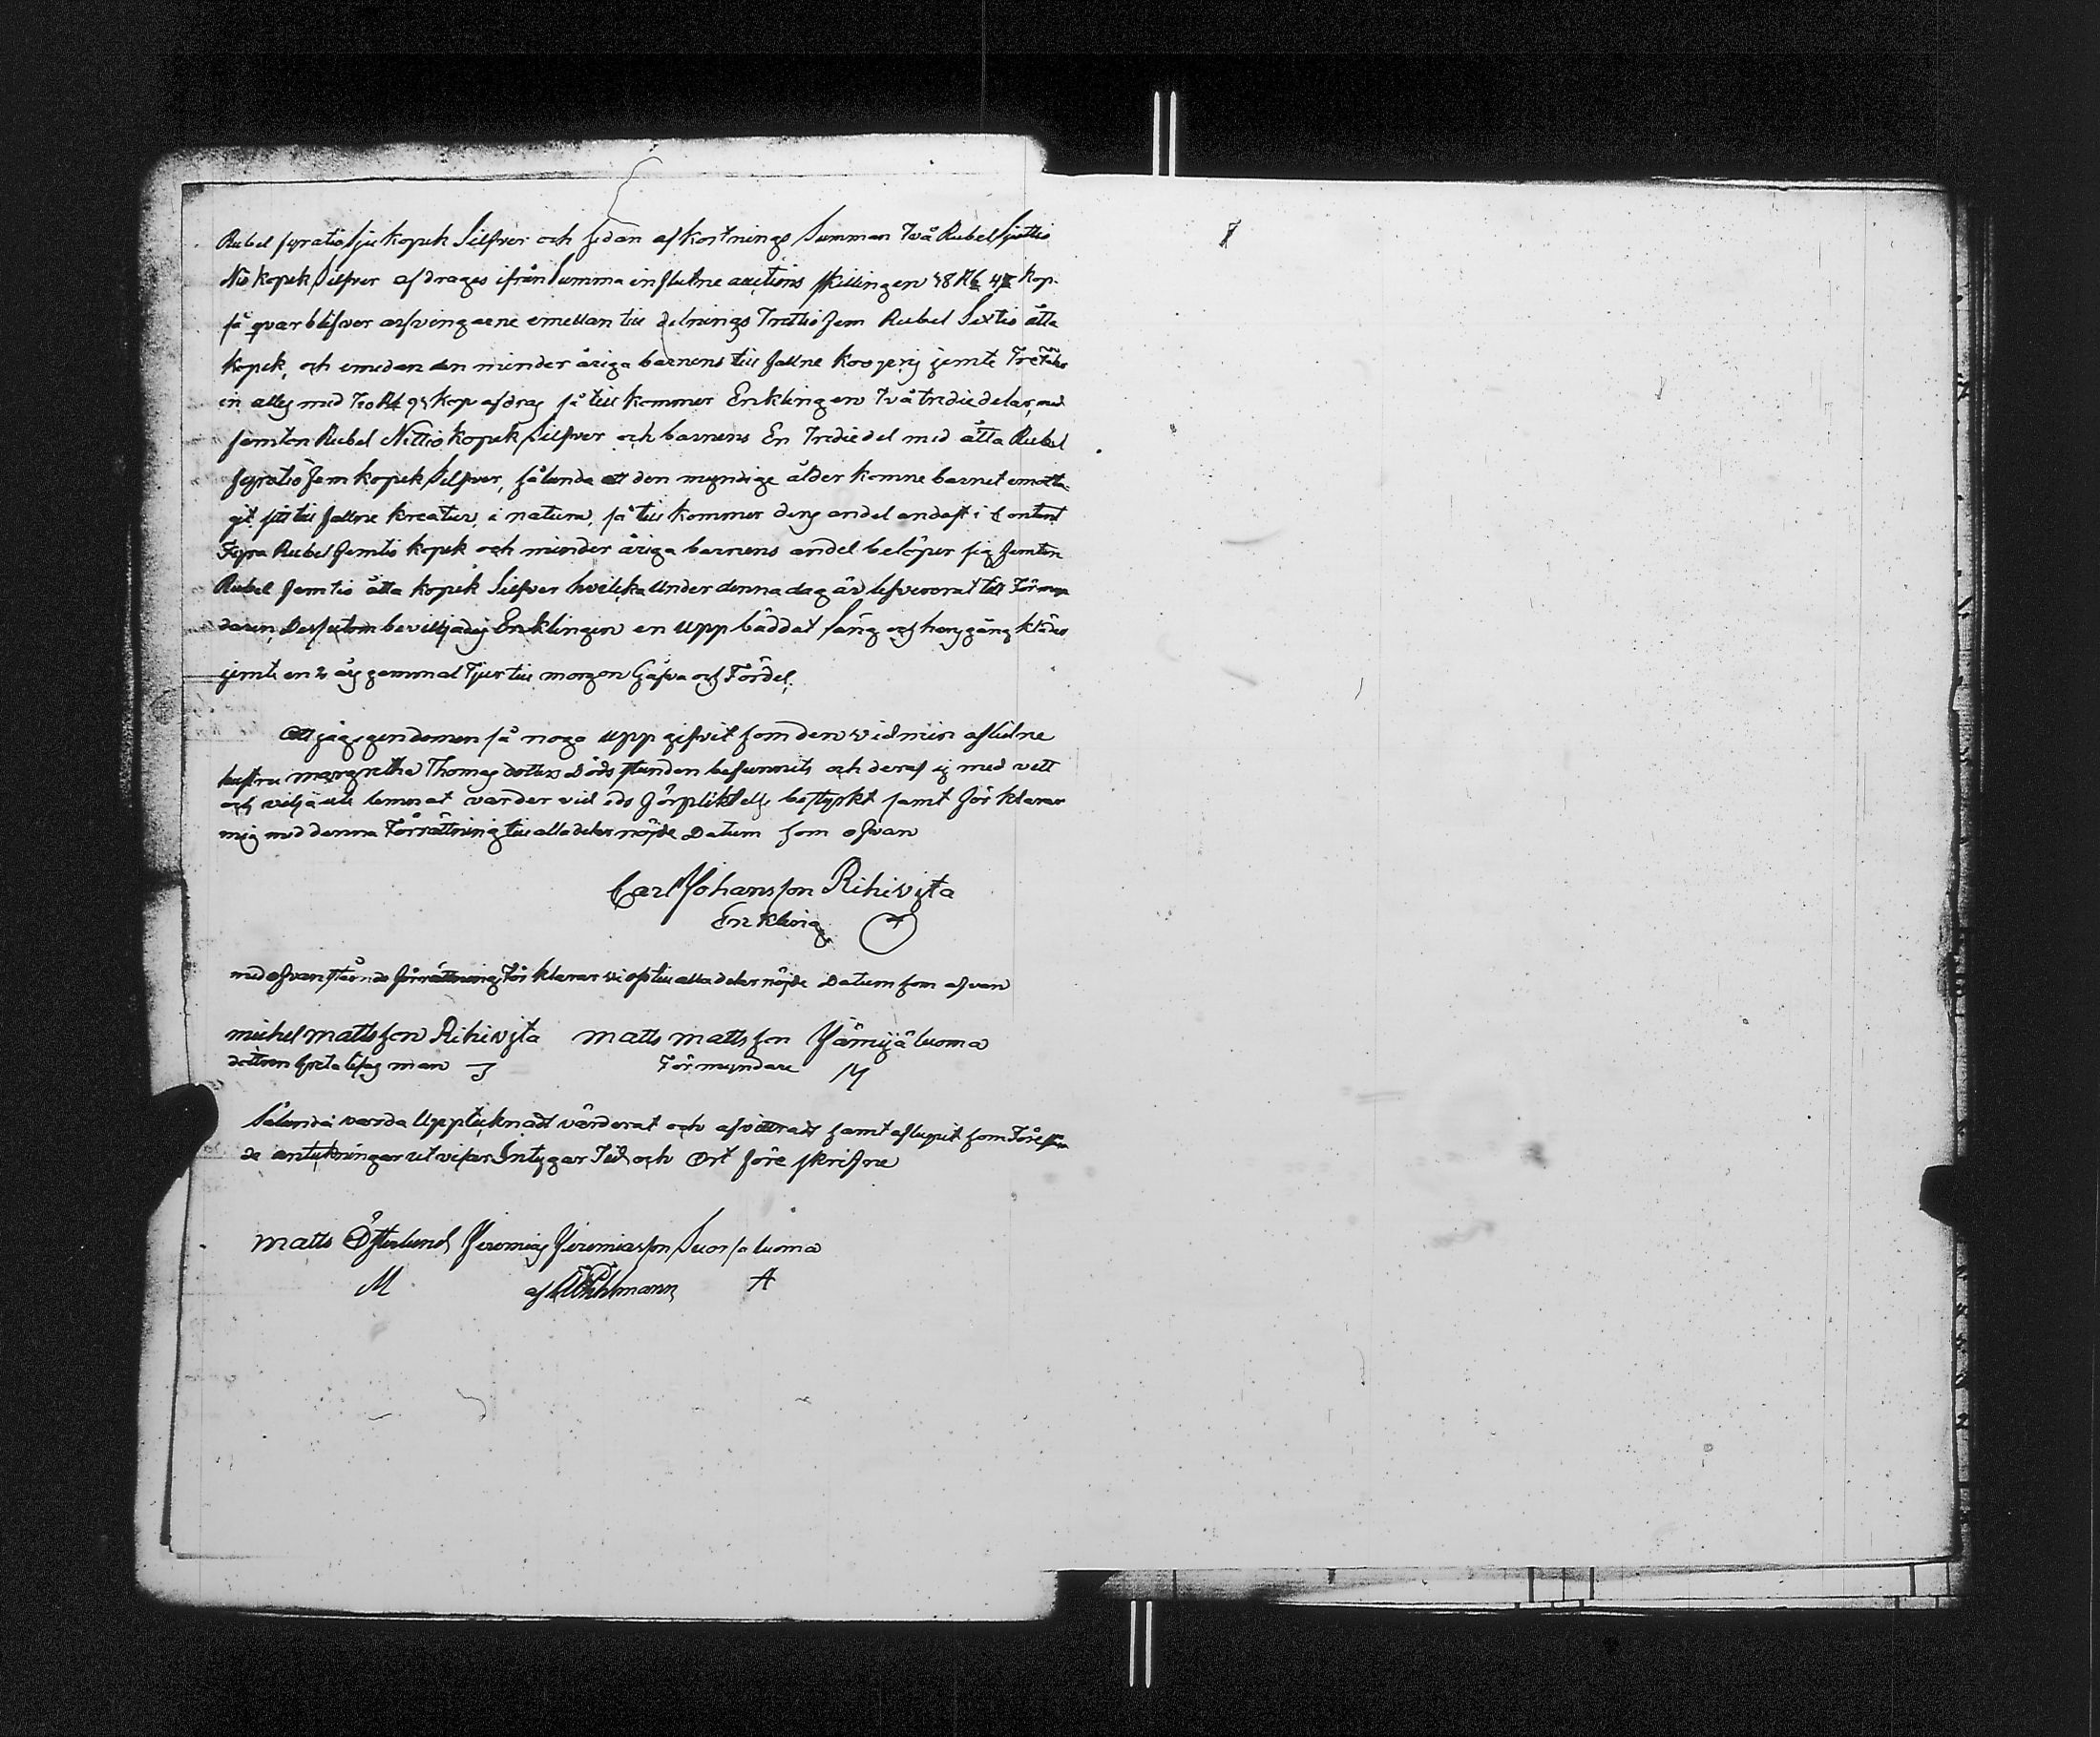 Rubel fyratio Sju kopek Silfver och sedan afkortnings Summan Två Rubel Sjuttio
Nio kopek Silfver afdrages ifrån Summa influtne auctions skillingen 48 Rb 47 kop.
så qvarblifver arfvingarne emellan till delnings Trettio fem Rubel Sextio åtta
kopek, och emedan den minder åriga barnens till fallne koo jemte
in alles med Rb kop afdrag så till kommer Enklingen två tridiedelar med
femton Rubel Nittio kopek Silfver och barnens En Tridiedel med åtta Rubel
fyratio fem kopek Silfver, sålunda att den myndige ålder komne barnet emotta
git sitt till fallne kreatur, i natura, så till kommer dess andel endast i Contant
Fyra Rubel femtio kopek och minder åriga barnens andel belöper sig femton
Rubel femtio åtta kopek Silfver hvilka under denna dag är lefvererat till Förmyn
daren, Dessutom beviljades Enklingen en uppbäddat säng och gång kläder
jemte en 2 års gammal Tjur till morgon Gåfva och Fördel.
Att jag egendomen så noga uppgifvit som den vid min aflidne
hustru Margretha Thomas dotters Döds stunden befunnits och deraf ej med vett
och vilja ute lemnat varder vid eds förpliktelse bestyrkt samt förklarar
mig med denna Förrättning till alla delar nöjde Datum som ofvan
Carl Johansson Rihivista
Enkling
med ofvanstående förrättning förklarar vi oss till alla delar nöjde Datum som ofvan
Michel Mattsson Rihivista Matts Mattsson Jämijäluoma
dottren Greta Lisas man Förmyndare M
Sålunda varda Upptecknadt värderat och afvittradt samt aflupit som Förestån
de anteckningar utvisar Intygar Tid och Ort före skrifne
Matts Österlund Jeremias Jeremiasson Suosaluoma
M af A